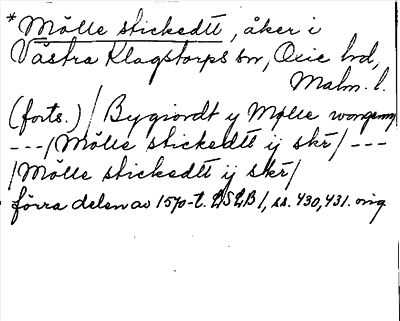 *Mölle stickedtt, åker i
Västra Klagstorps sn, Oxie hd,
Malm. l.
(forts.) / Bygiordt y Mølle wongenn
---/Mölle stickedtt ij skr̄/---
/Mölle stickedtt ij skr̄/
förra delen av 1570-t. LSLB 1, ss. 430, 431. orig